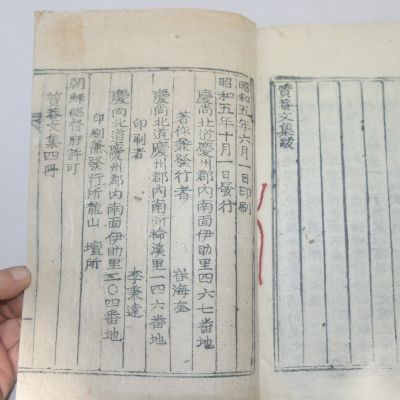 質菴文集跋
昭和五年六月一日印刷
昭和五年十月一日發行
慶尚北道慶州郡內南面伊助里四六七番地
著作兼發行者 崔海奎
慶尚北道慶州郡內南面溪里一四六番地
印刷者 李秉遠
慶尚北道慶州郡內南面伊助里三〇四番地
印刷兼發行所龍山 壇所
朝鮮總督府許可
質菴文集四冊